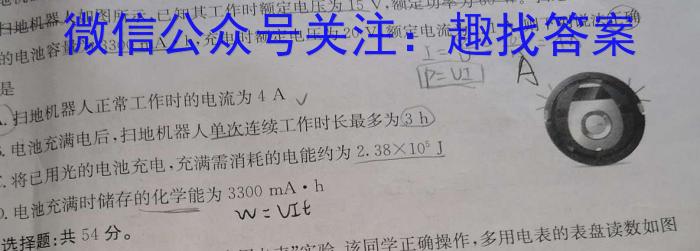 扫地机器人如图所示,已知其工作时额定电压为15 V,额定功率为60
微信公众号关注：趣找答案
的电池容量 3300 m 充电时额定电压为20 V,额定电流
I=
P=UI
A
是
A.扫地机器人正常工作时的电流为4 A ✓
B.电池充满电后,扫地机器人单次连续工作时长最多为3 h
C.将已用光的电池充电,充满需消耗的电能约为2.38×10⁵ J
D.电池充满时储存的化学能为3300 mA·h
W=UIt
选择题:共54分。
实验,该同学正确操作,多用电表的表盘读数如图